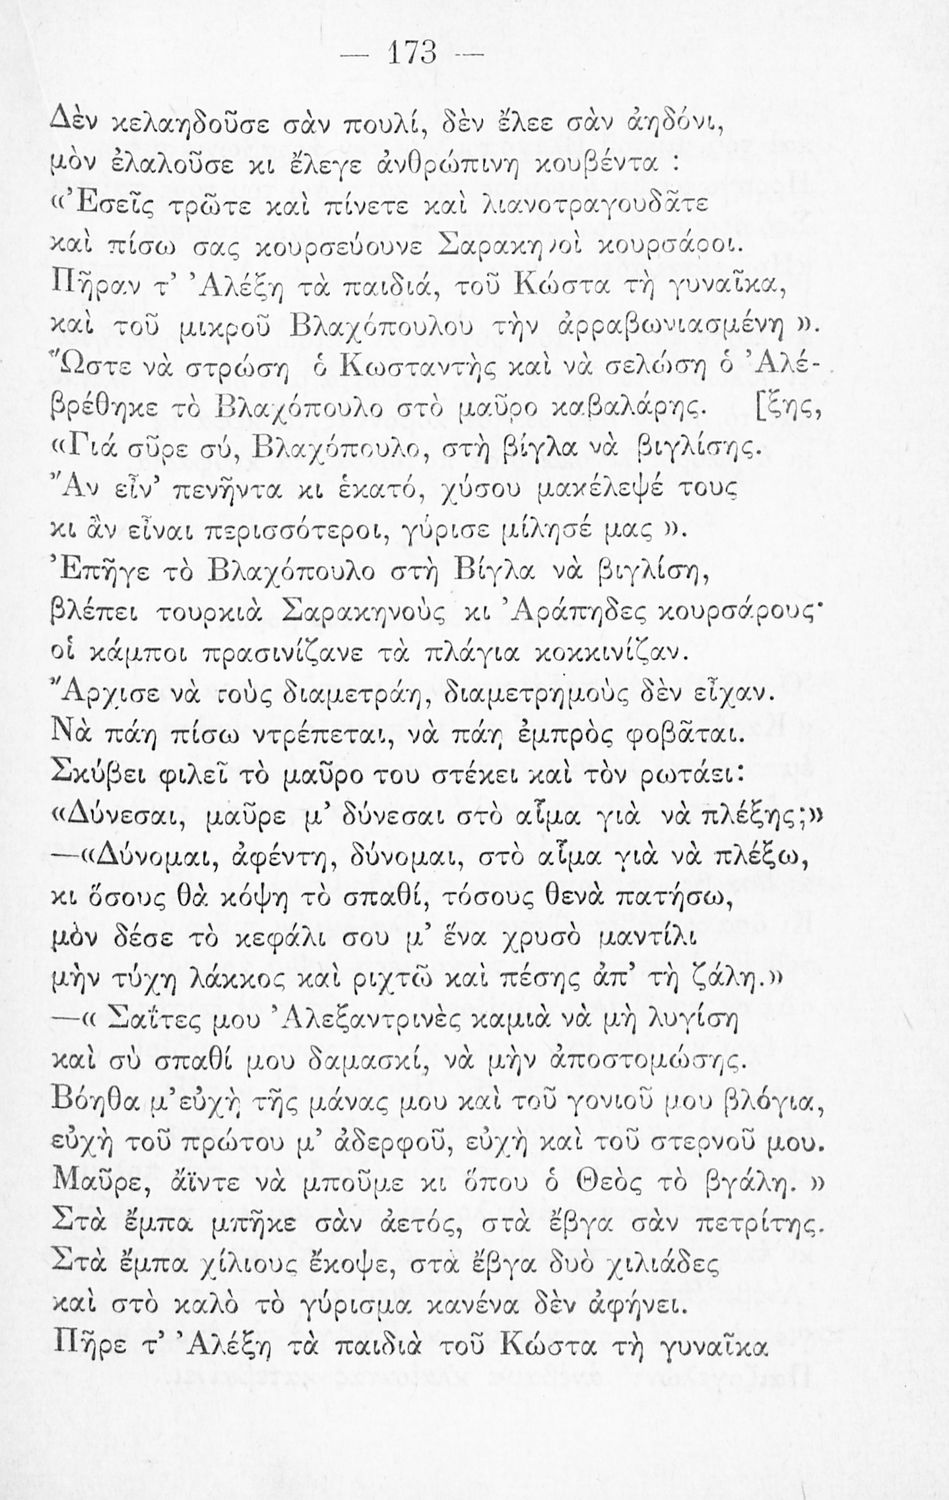 — 173 —
Δὲν κελαηδοῦσε σὰν πουλί, δὲν ἔλεε σὰν ἀηδόνι,
μὸν ἐλαλοῦσε κι ἔλεγε ἀνθρώπινη κουβέντα :
«Ἐσεῖς τρῶτε καὶ πίνετε καὶ λιανοτραγουδᾶτε
καὶ πίσω σας κουρσεύουνε Σαρακηνοὶ κουρσάροι.
Πῆραν τ’ Ἀλέξη τὰ παιδιά, τοῦ Κώστα τὴ γυναῖκα,
καὶ τοῦ μικροῦ Βλαχόπουλου τὴν ἀρραβωνιασμένη ».
Ὥστε νὰ στρώση ὁ Κωσταντὴς καὶ νὰ σελώση ὁ Ἀλέ-
βρέθηκε τὸ Βλαχόπουλο στὸ μαῦρο καβαλάρης. [ξης,
«Γιά σῦρε σύ, Βλαχόπουλο, στὴ βίγλα νὰ βιγλίσης.
Ἂν εἶν’ πενῆντα κι ἑκατό, χύσου μακέλεψέ τους
κι ἂν εἶναι περισσότεροι, γύρισε μίλησέ μας ».
Ἐπῆγε τὸ Βλαχόπουλο στὴ Βίγλα νὰ βιγλίση,
βλέπει τουρκιὰ Σαρακηνοὺς κι Ἀράπηδες κουρσάρους·
οἱ κάμποι πρασινίζανε τὰ πλάγια κοκκινίζαν.
Ἄρχισε νὰ τοὺς διαμετράη, διαμετρημοὺς δὲν εἶχαν.
Νὰ πάη πίσω ντρέπεται, νὰ πάη ἐμπρὸς φοβᾶται.
Σκύβει φιλεῖ τὸ μαῦρο του στέκει καὶ τὸν ρωτάει:
«Δύνεσαι, μαῦρε μ’ δύνεσαι στὸ αἷμα γιὰ νὰ πλέξης;»
—«Δύνομαι, ἀφέντη, δύνομαι, στὸ αἷμα γιὰ νὰ πλέξω,
κι ὅσους θὰ κόψη τὸ σπαθί, τόσους θενὰ πατήσω,
μὸν δέσε τὸ κεφάλι σου μ’ ἕνα χρυσὸ μαντίλι
μὴν τύχη λάκκος καὶ ριχτῶ καὶ πέσης ἀπ’ τὴ ζάλη.»
—« Σαΐτες μου Ἀλεξαντρινὲς καμιὰ νὰ μὴ λυγίση
καὶ σὺ σπαθί μου δαμασκί, νὰ μὴν ἀποστομώσης.
Βόηθα μ’ εὐχὴ τῆς μάνας μου καὶ τοῦ γονιοῦ μου βλόγια,
εὐχὴ τοῦ πρώτου μ’ ἀδερφοῦ, εὐχὴ καὶ τοῦ στερνοῦ μου.
Μαῦρε, ἄϊντε νὰ μποῦμε κι ὅπου ὁ Θεὸς τὸ βγάλη. »
Στὰ ἔμπα μπῆκε σὰν ἀετός, στὰ ἔβγα σὰν πετρίτης.
Στὰ ἔμπα χίλιους ἔκοψε, στὰ ἔβγα δυὸ χιλιάδες
καὶ στὸ καλὸ τὸ γύρισμα κανένα δὲν ἀφήνει.
Πῆρε τ’ Ἀλέξη τὰ παιδιὰ τοῦ Κώστα τὴ γυναῖκα